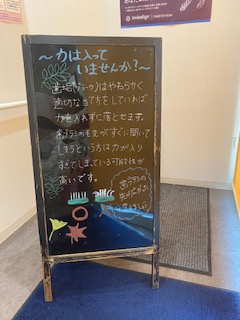 ～力は入って
いませんか？～
歯垢(プラーク)はやわらかく
適切な当て方をしていれば
力を入れずに落とせます。
歯ブラシの毛先がすぐに開いて
しまうという方は力が入り
すぎてしまっている可能性が
高いです。
歯ブラシの
invisalign